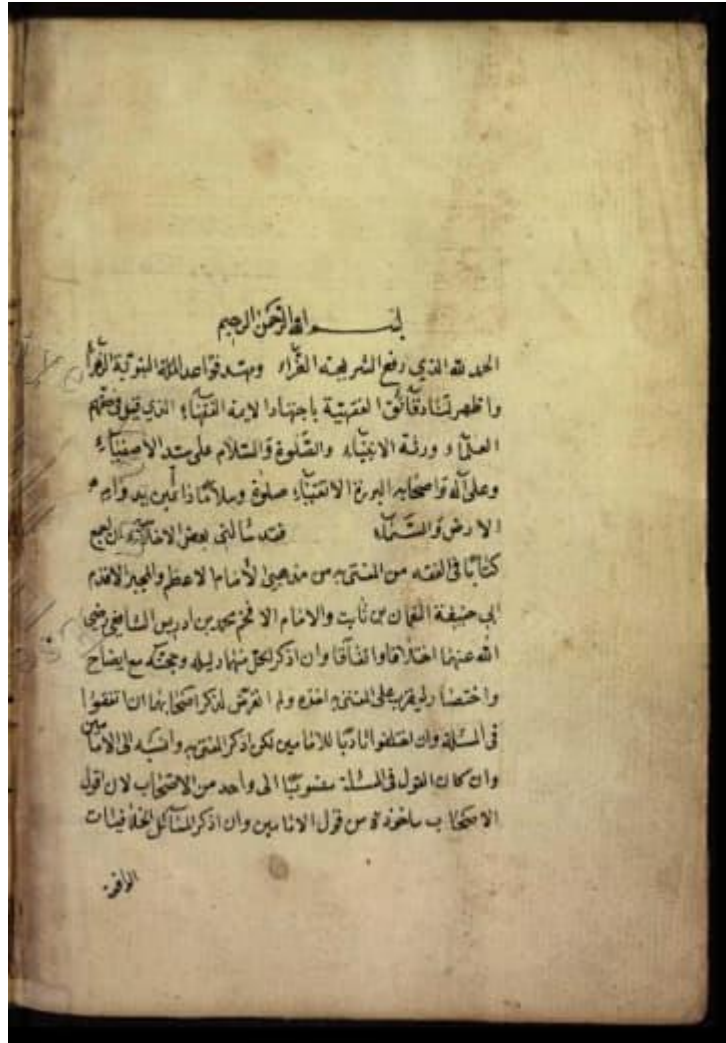 بسم الله الرحمن الرحيم
الحمد لله الذي رفع الشريعة الغراء ومهد قواعد الملة النبوية الزهراء
واظهر لنا دقائق الفقهية باجتهاد الايمة الفقهاء الذي قيل في حقهم
العلماء ورثة الانبياء والصلوة والسلام على سند الاصفياء
وعلى آله واصحابه البررة الاتقياء صلوة وسلاما دائمين بدوام
الارض والسماء فقد سالني بعض ان اجمع
كتابا في الفقه من المفتى به من مذهبي الامام الاعظم والحبر الاقدم
ابي حنيفة النعمان بن ثابت والامام الافخم محمد بن ادريس الشافعي رضي
الله عنهما اختلافا واتفاقا وان اذكر لكل منهما دليله وحجته مع ايضاح
واختصار ليقرب على المفتى اخذه ولم اتعرض لذكر اصحابهما ان اتفقوا
في المسئلة وان اختلفوا تادبا للامامين لكن اذكر المفتى به وانسبه الى الامامين
وان كان القول في المسئلة منسوبا الى واحد من الاصحاب لان قول
الاصحاب ماخوذة من قول الامامين وان اذكر المسائل الخلافيات
الواقع